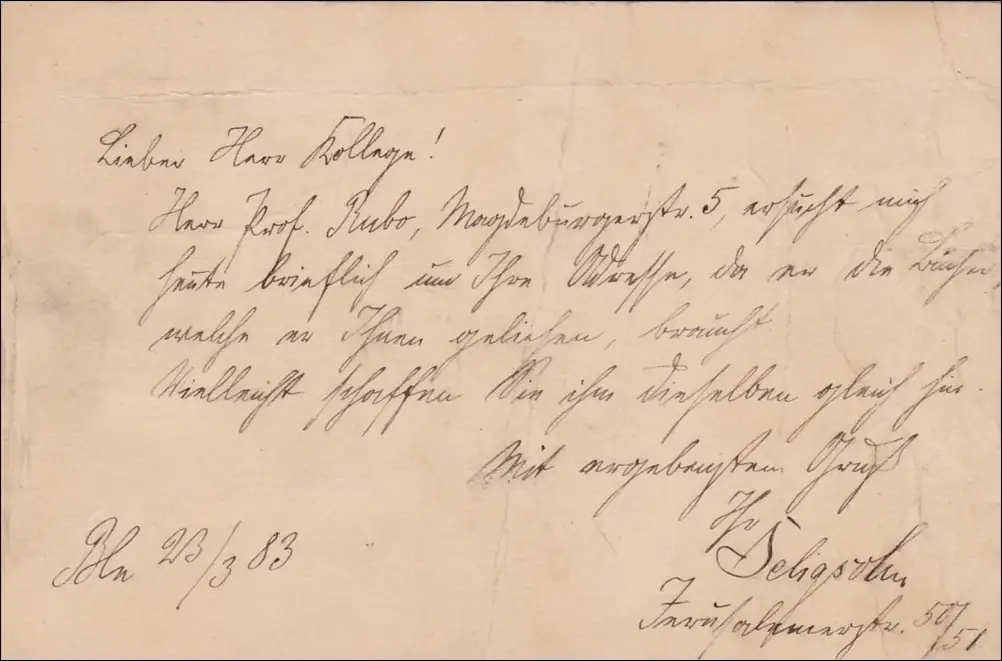 Lieber Herr Kollege!
Herr Prof. Rubo, Magdeburgerstr. 5, ersucht mich
heute brieflich um Ihre Adresse, da er die Bücher,
welche er Ihnen geliehen, braucht.
Vielleicht schaffen Sie ihm dieselben gleich hin.
Mit ergebenstem Gruß
Ihr
Seligsohn
Jerusalemerstr. 50/51
Bln 23/3 83